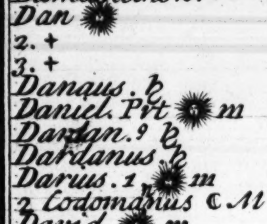 Dan
2. +
3. +
Danaus. ♄
Daniel. Prt m
Dardan. 9 ♄
Dardanus. ♄
Darius. 1 m
2 Codomanus ☾ M
David m